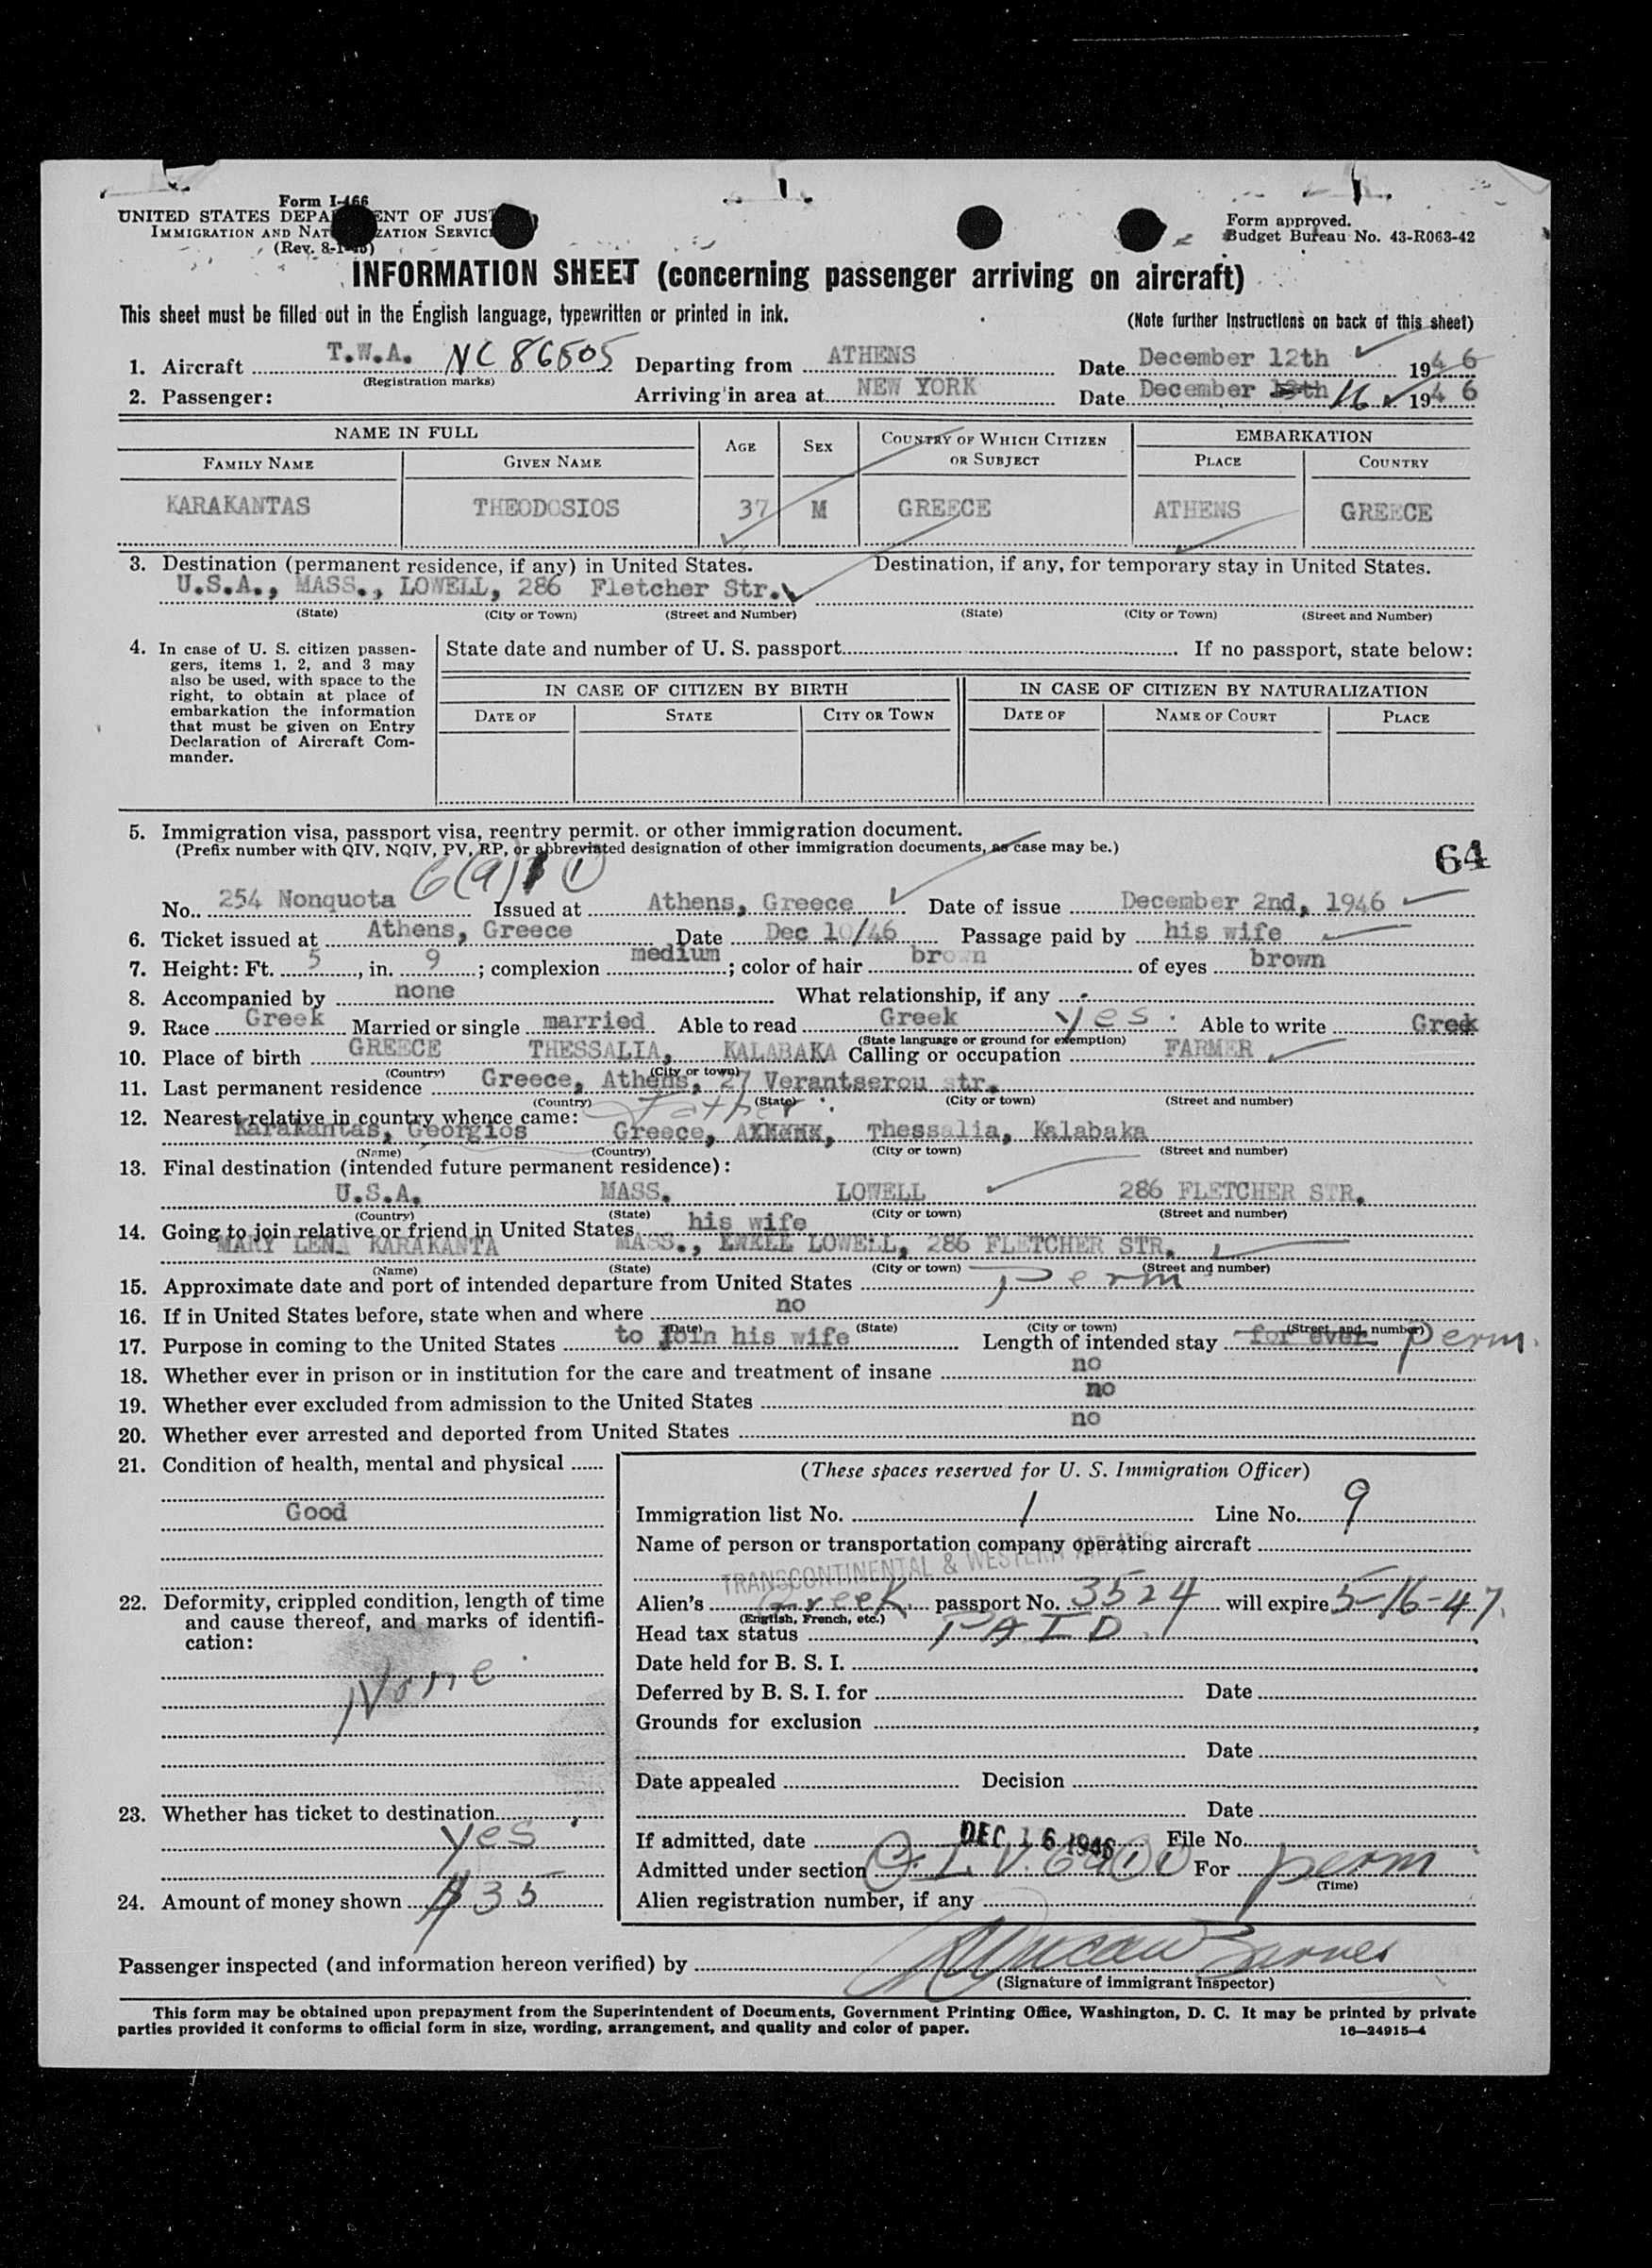 Form I-466
UNITED STATES DEPA ENT OF JUS
IMMIGRATION AND NAT ZATION SERVIC
(Rev. 8-1- )
Form approved.
Budget Bureau No. 43-R063-42
INFORMATION SHEET (concerning passenger arriving on aircraft)
This sheet must be filled out in the English language, typewritten or printed in ink.
(Note further instructions on back of this sheet)
1. Aircraft T.W.A. NC 86505 Departing from ATHENS Date December 12th 1946
(Registration marks)
2. Passenger: Arriving in area at NEW YORK Date December 13th 16 1946
NAME IN FULL AGE SEX COUNTRY OF WHICH CITIZEN OR SUBJECT EMBARKATION
FAMILY NAME GIVEN NAME PLACE COUNTRY
KARAKANTAS THEODOSIOS 37 M GREECE ATHENS GREECE
3. Destination (permanent residence, if any) in United States. Destination, if any, for temporary stay in United States.
U.S.A., MASS., LOWELL, 286 Fletcher Str.
(State) (City or Town) (Street and Number) (State) (City or Town) (Street and Number)
4. In case of U. S. citizen passen-
gers, items 1, 2, and 3 may
also be used, with space to the
right, to obtain at place of
embarkation the information
that must be given on Entry
Declaration of Aircraft Com-
mander.
State date and number of U. S. passport If no passport, state below:
IN CASE OF CITIZEN BY BIRTH IN CASE OF CITIZEN BY NATURALIZATION
DATE OF STATE CITY OR TOWN DATE OF NAME OF COURT PLACE
5. Immigration visa, passport visa, reentry permit. or other immigration document.
(Prefix number with QIV, NQIV, PV, RP, or abbreviated designation of other immigration documents, as case may be.)
64
No. 254 Nonquota 6(a)(1) Issued at Athens, Greece Date of issue December 2nd, 1946
6. Ticket issued at Athens, Greece Date Dec 10/46 Passage paid by his wife
7. Height: Ft. 5, in. 9; complexion medium; color of hair brown of eyes brown
8. Accompanied by none What relationship, if any -
9. Race Greek Married or single married Able to read Greek yes Able to write Greek
(State language or ground for exemption)
10. Place of birth GREECE THESSALIA, KALABAKA Calling or occupation FARMER
(Country) (City or town)
11. Last permanent residence Greece, Athens, 27 Verantserou str.
(Country) (State) (City or town) (Street and number)
12. Nearest relative in country whence came: Father
Karakantas, Georgios Greece, Thessalia, Kalabaka
(Name) (Country) (City or town) (Street and number)
13. Final destination (intended future permanent residence):
U.S.A. MASS. LOWELL 286 FLETCHER STR.
(Country) (State) (City or town) (Street and number)
14. Going to join relative or friend in United States his wife
MARY LENA KARAKANTA MASS., LOWELL, 286 FLETCHER STR.
(Name) (State) (City or town) (Street and number)
15. Approximate date and port of intended departure from United States Perm
16. If in United States before, state when and where no
(Date) (State) (City or town) (Street and number)
17. Purpose in coming to the United States to join his wife Length of intended stay for ever perm.
18. Whether ever in prison or in institution for the care and treatment of insane no
19. Whether ever excluded from admission to the United States no
20. Whether ever arrested and deported from United States no
21. Condition of health, mental and physical
Good
22. Deformity, crippled condition, length of time
and cause thereof, and marks of identifi-
cation:
None
23. Whether has ticket to destination
yes
24. Amount of money shown $35
(These spaces reserved for U. S. Immigration Officer)
Immigration list No. 1 Line No. 9
Name of person or transportation company operating aircraft
TRANSCONTINENTAL & WESTERN AIR INC
Alien's Greek passport No. 3524 will expire 5-16-47.
(English, French, etc.)
Head tax status PAID
Date held for B. S. I.
Deferred by B. S. I. for Date
Grounds for exclusion
Date
Date appealed Decision
Date
If admitted, date DEC 16 1946 File No.
Admitted under section For perm
(Time)
Alien registration number, if any
Passenger inspected (and information hereon verified) by
(Signature of immigrant inspector)
This form may be obtained upon prepayment from the Superintendent of Documents, Government Printing Office, Washington, D. C. It may be printed by private
parties provided it conforms to official form in size, wording, arrangement, and quality and color of paper. 16—24915-4